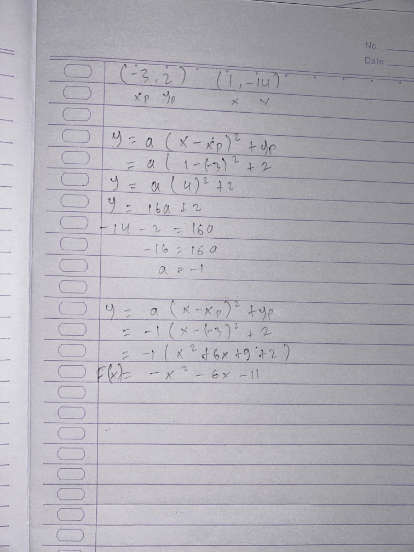 No.
Date
(-3,2) (1,-14)
xp yp x y
y = a (x - xp)² + yp
= a (1-(-3)² + 2
y = a (4)² + 2
y = 16a + 2
-14 - 2 = 16a
-16 = 16a
a = -1
y = a (x - xp)² + yp
= -1 (x-(-3)² + 2
= -1 (x² + 6x + 9 + 2)
F(x) = -x² - 6x - 11